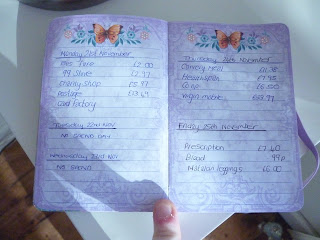 Monday 21st November
Bus fare £2.00
99p Store £2.97
Charity Shop £5.97
Postage £13.69
Card Factory
Tuesday 22nd Nov
NO SPEND DAY
Wednesday 23rd Nov
NO SPEND
Thursday 24th November
£1.38
£7.95
CO OP
Virgin mobile £13.97
Friday 25th November
Prescription £7.60
Bread 99p
leggings £6.00